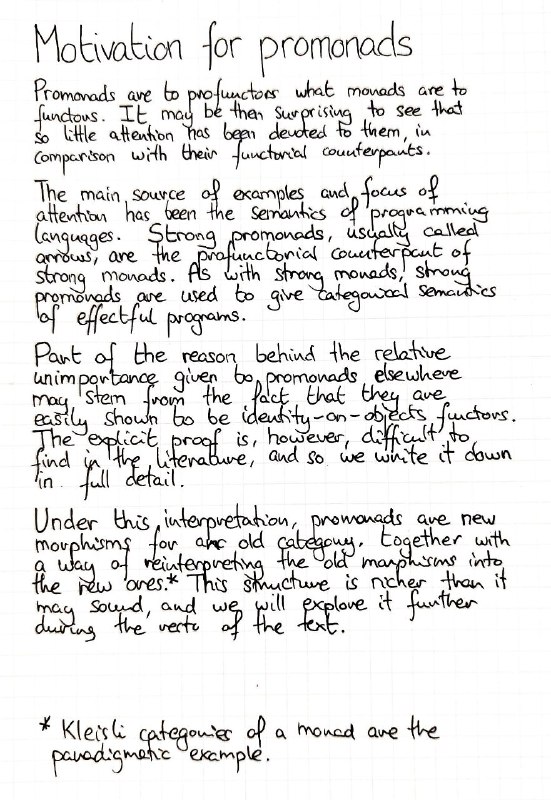 Motivation for promonads
Promonads are to profunctors what monads are to
functors. It may be then surprising to see that
so little attention has been devoted to them, in
comparison with their functorial counterparts.
The main source of examples and focus of
attention has been the semantics of programming
languages. Strong promonads, usually called
arrows, are the profunctorial counterpart of
strong monads. As with strong monads, strong
promonads are used to give categorical semantics
of effectful programs.
Part of the reason behind the relative
unimportance given to promonads elsewhere
may stem from the fact that they are
easily shown to be identity-on-objects functors.
The explicit proof is, however, difficult to
find in the literature, and so we write it down
in full detail.
Under this interpretation, promonads are new
morphisms for an old category, together with
a way of reinterpreting the old morphisms into
the new ones.* This structure is richer than it
may sound, and we will explore it further
during the rest of the text.
* Kleisli categories of a monad are the
paradigmatic example.